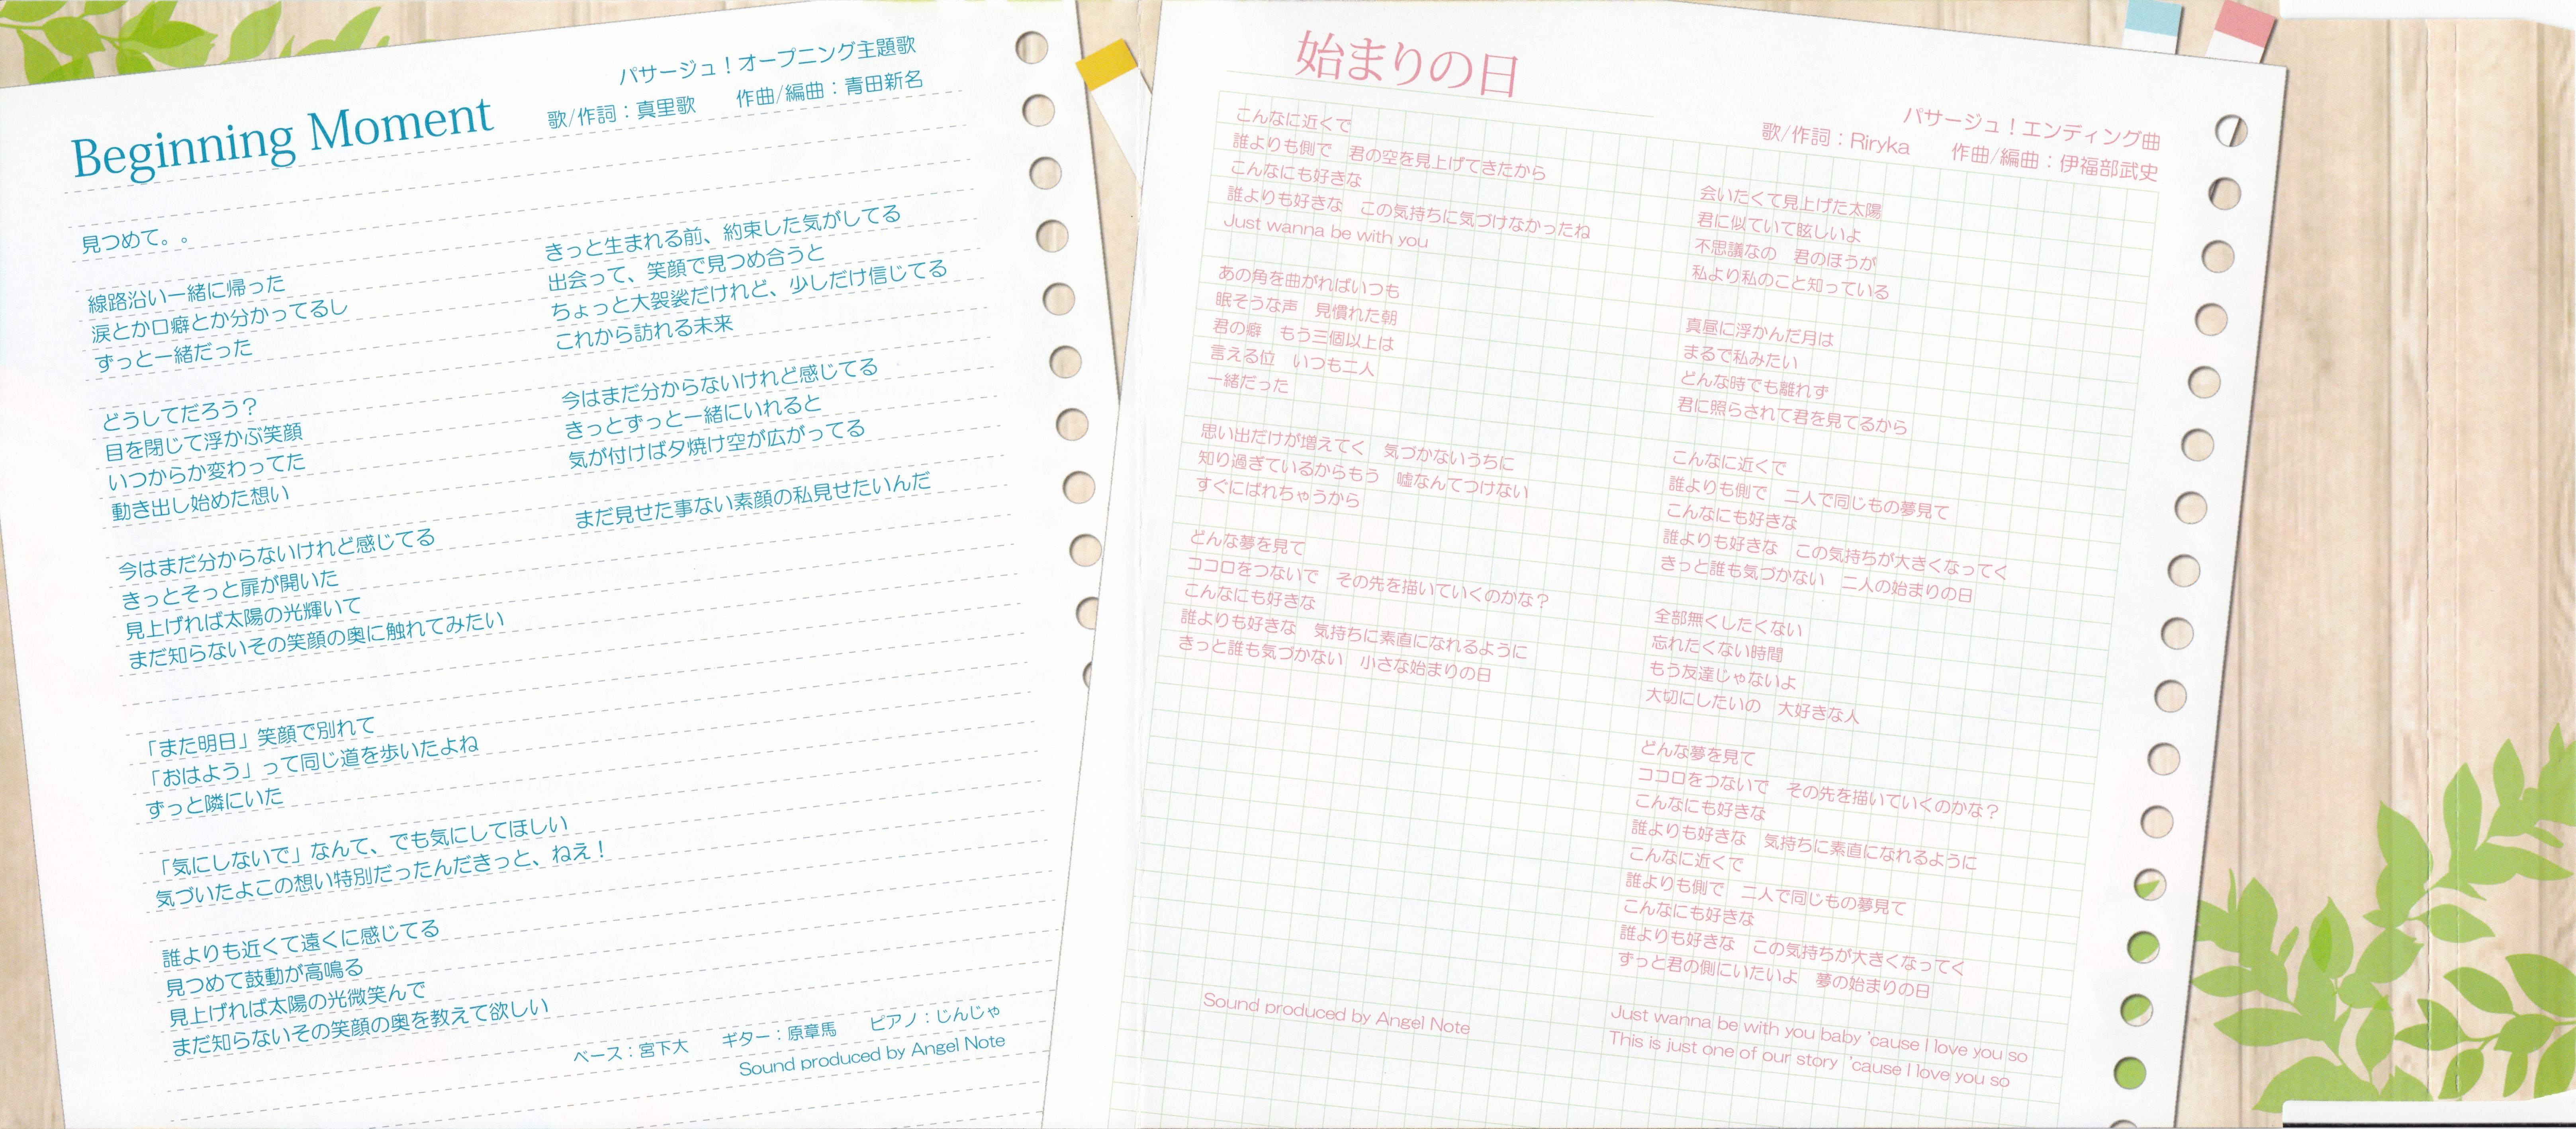 Beginning Moment
パサージュ！オープニング主題歌
歌/作詞：真里歌　作曲/編曲：青田新名
見つめて。。
線路沿い一緒に帰った
涙とか口癖とか分かってるし
ずっと一緒だった
どうしてだろう？
目を閉じて浮かぶ笑顔
いつからか変わってた
動き出し始めた想い
今はまだ分からないけれど感じてる
きっとそっと扉が開いた
見上げれば太陽の光輝いて
まだ知らないその笑顔の奥に触れてみたい
「また明日」笑顔で別れて
「おはよう」って同じ道を歩いたよね
ずっと隣にいた
「気にしないで」なんて、でも気にしてほしい
気づいたよこの想い特別だったんだきっと、ねえ！
誰よりも近くて遠くに感じてる
見つめて鼓動が高鳴る
見上げれば太陽の光微笑んで
まだ知らないその笑顔の奥を教えて欲しい
きっと生まれる前、約束した気がしてる
出会って、笑顔で見つめ合うと
ちょっと大袈裟だけれど、少しだけ信じてる
これから訪れる未来
今はまだ分からないけれど感じてる
きっとずっと一緒にいれると
気が付けば夕焼け空が広がってる
まだ見せた事ない素顔の私見せたいんだ
ベース：宮下大　ギター：原章馬　ピアノ：じんじゃ
Sound produced by Angel Note
始まりの日
パサージュ！エンディング曲
歌/作詞：Riryka　作曲/編曲：伊福部武史
こんなに近くで
誰よりも側で　君の空を見上げてきたから
こんなにも好きな
誰よりも好きな　この気持ちに気づけなかったね
Just wanna be with you
あの角を曲がればいつも
眠そうな声　見慣れた朝
君の癖　もう三個以上は
言える位　いつも二人
一緒だった
思い出だけが増えてく　気づかないうちに
知り過ぎているからもう　嘘なんてつけない
すぐにばれちゃうから
どんな夢を見て
ココロをつないで　その先を描いていくのかな？
こんなにも好きな
誰よりも好きな　気持ちに素直になれるように
きっと誰も気づかない　小さな始まりの日
Sound produced by Angel Note
会いたくて見上げた太陽
君に似ていて眩しいよ
不思議なの　君のほうが
私より私のこと知っている
真昼に浮かんだ月は
まるで私みたい
どんな時でも離れず
君に照らされて君を見てるから
こんなに近くで
誰よりも側で　二人で同じもの夢見て
こんなにも好きな
誰よりも好きな　この気持ちが大きくなってく
きっと誰も気づかない　二人の始まりの日
全部無くしたくない
忘れたくない時間
もう友達じゃないよ
大切にしたいの　大好きな人
どんな夢を見て
ココロをつないで　その先を描いていくのかな？
こんなにも好きな
誰よりも好きな　気持ちに素直になれるように
こんなに近くで
誰よりも側で　二人で同じもの夢見て
こんなにも好きな
誰よりも好きな　この気持ちが大きくなってく
ずっと君の側にいたいよ　夢の始まりの日
Just wanna be with you baby 'cause I love you so
This is just one of our story 'cause I love you so